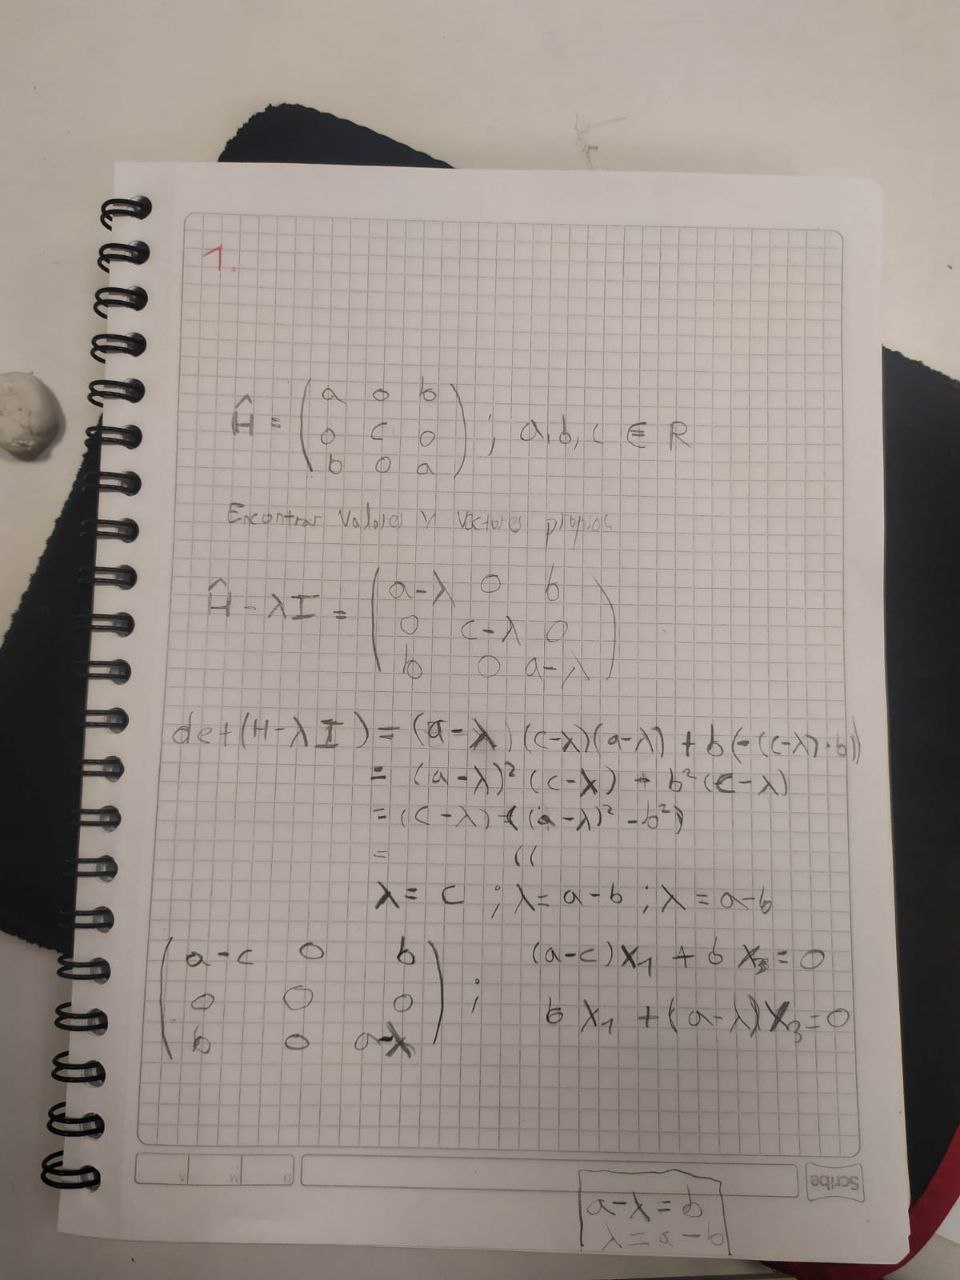 1.
Ĥ = ( a 0 b ; a, b, c ∈ R
0 c 0
b 0 a )
Encontrar valores y vectores propios
Ĥ - λI = ( a-λ 0 b
0 c-λ 0
b 0 a-λ )
det(H-λI) = (a-λ)(c-λ)(a-λ) + b(-(c-λ)·b))
= (a-λ)² (c-λ) - b² (c-λ)
= (c-λ) ((a-λ)² - b²)
= ((
λ = c ; λ = a-b ; λ = a-b
( a-c 0 b ; (a-c)x₁ + b x₃ = 0
0 0 0
b 0 a-λ ) b x₁ + (a-λ)x₃ = 0
Scribe
D M A
a-λ = b
λ = a-b